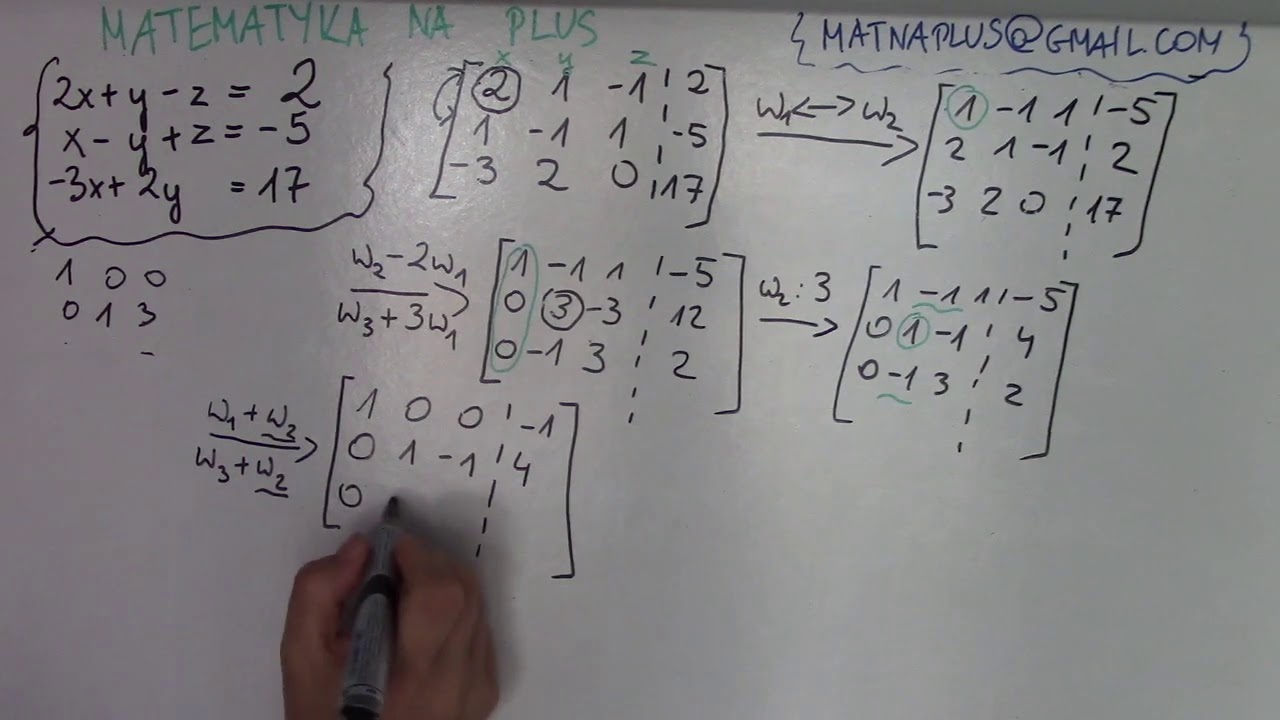 MATEMATYKA NA PLUS
{ MATNAPLUS@GMAIL.COM }
2x+y-z = 2
x-y+z = -5
-3x+2y = 17
x y z
2 1 -1 ¦ 2
1 -1 1 ¦ -5
-3 2 0 ¦ 17
w₁<->w₂
1 -1 1 ¦ -5
2 1 -1 ¦ 2
-3 2 0 ¦ 17
1 0 0
0 1 3
w₂-2w₁
w₃+3w₁
1 -1 1 ¦ -5
0 3 -3 ¦ 12
0 -1 3 ¦ 2
w₂:3
1 -1 1 ¦ -5
0 1 -1 ¦ 4
0 -1 3 ¦ 2
w₁+w₂
w₃+w₂
1 0 0 ¦ -1
0 1 -1 ¦ 4
0